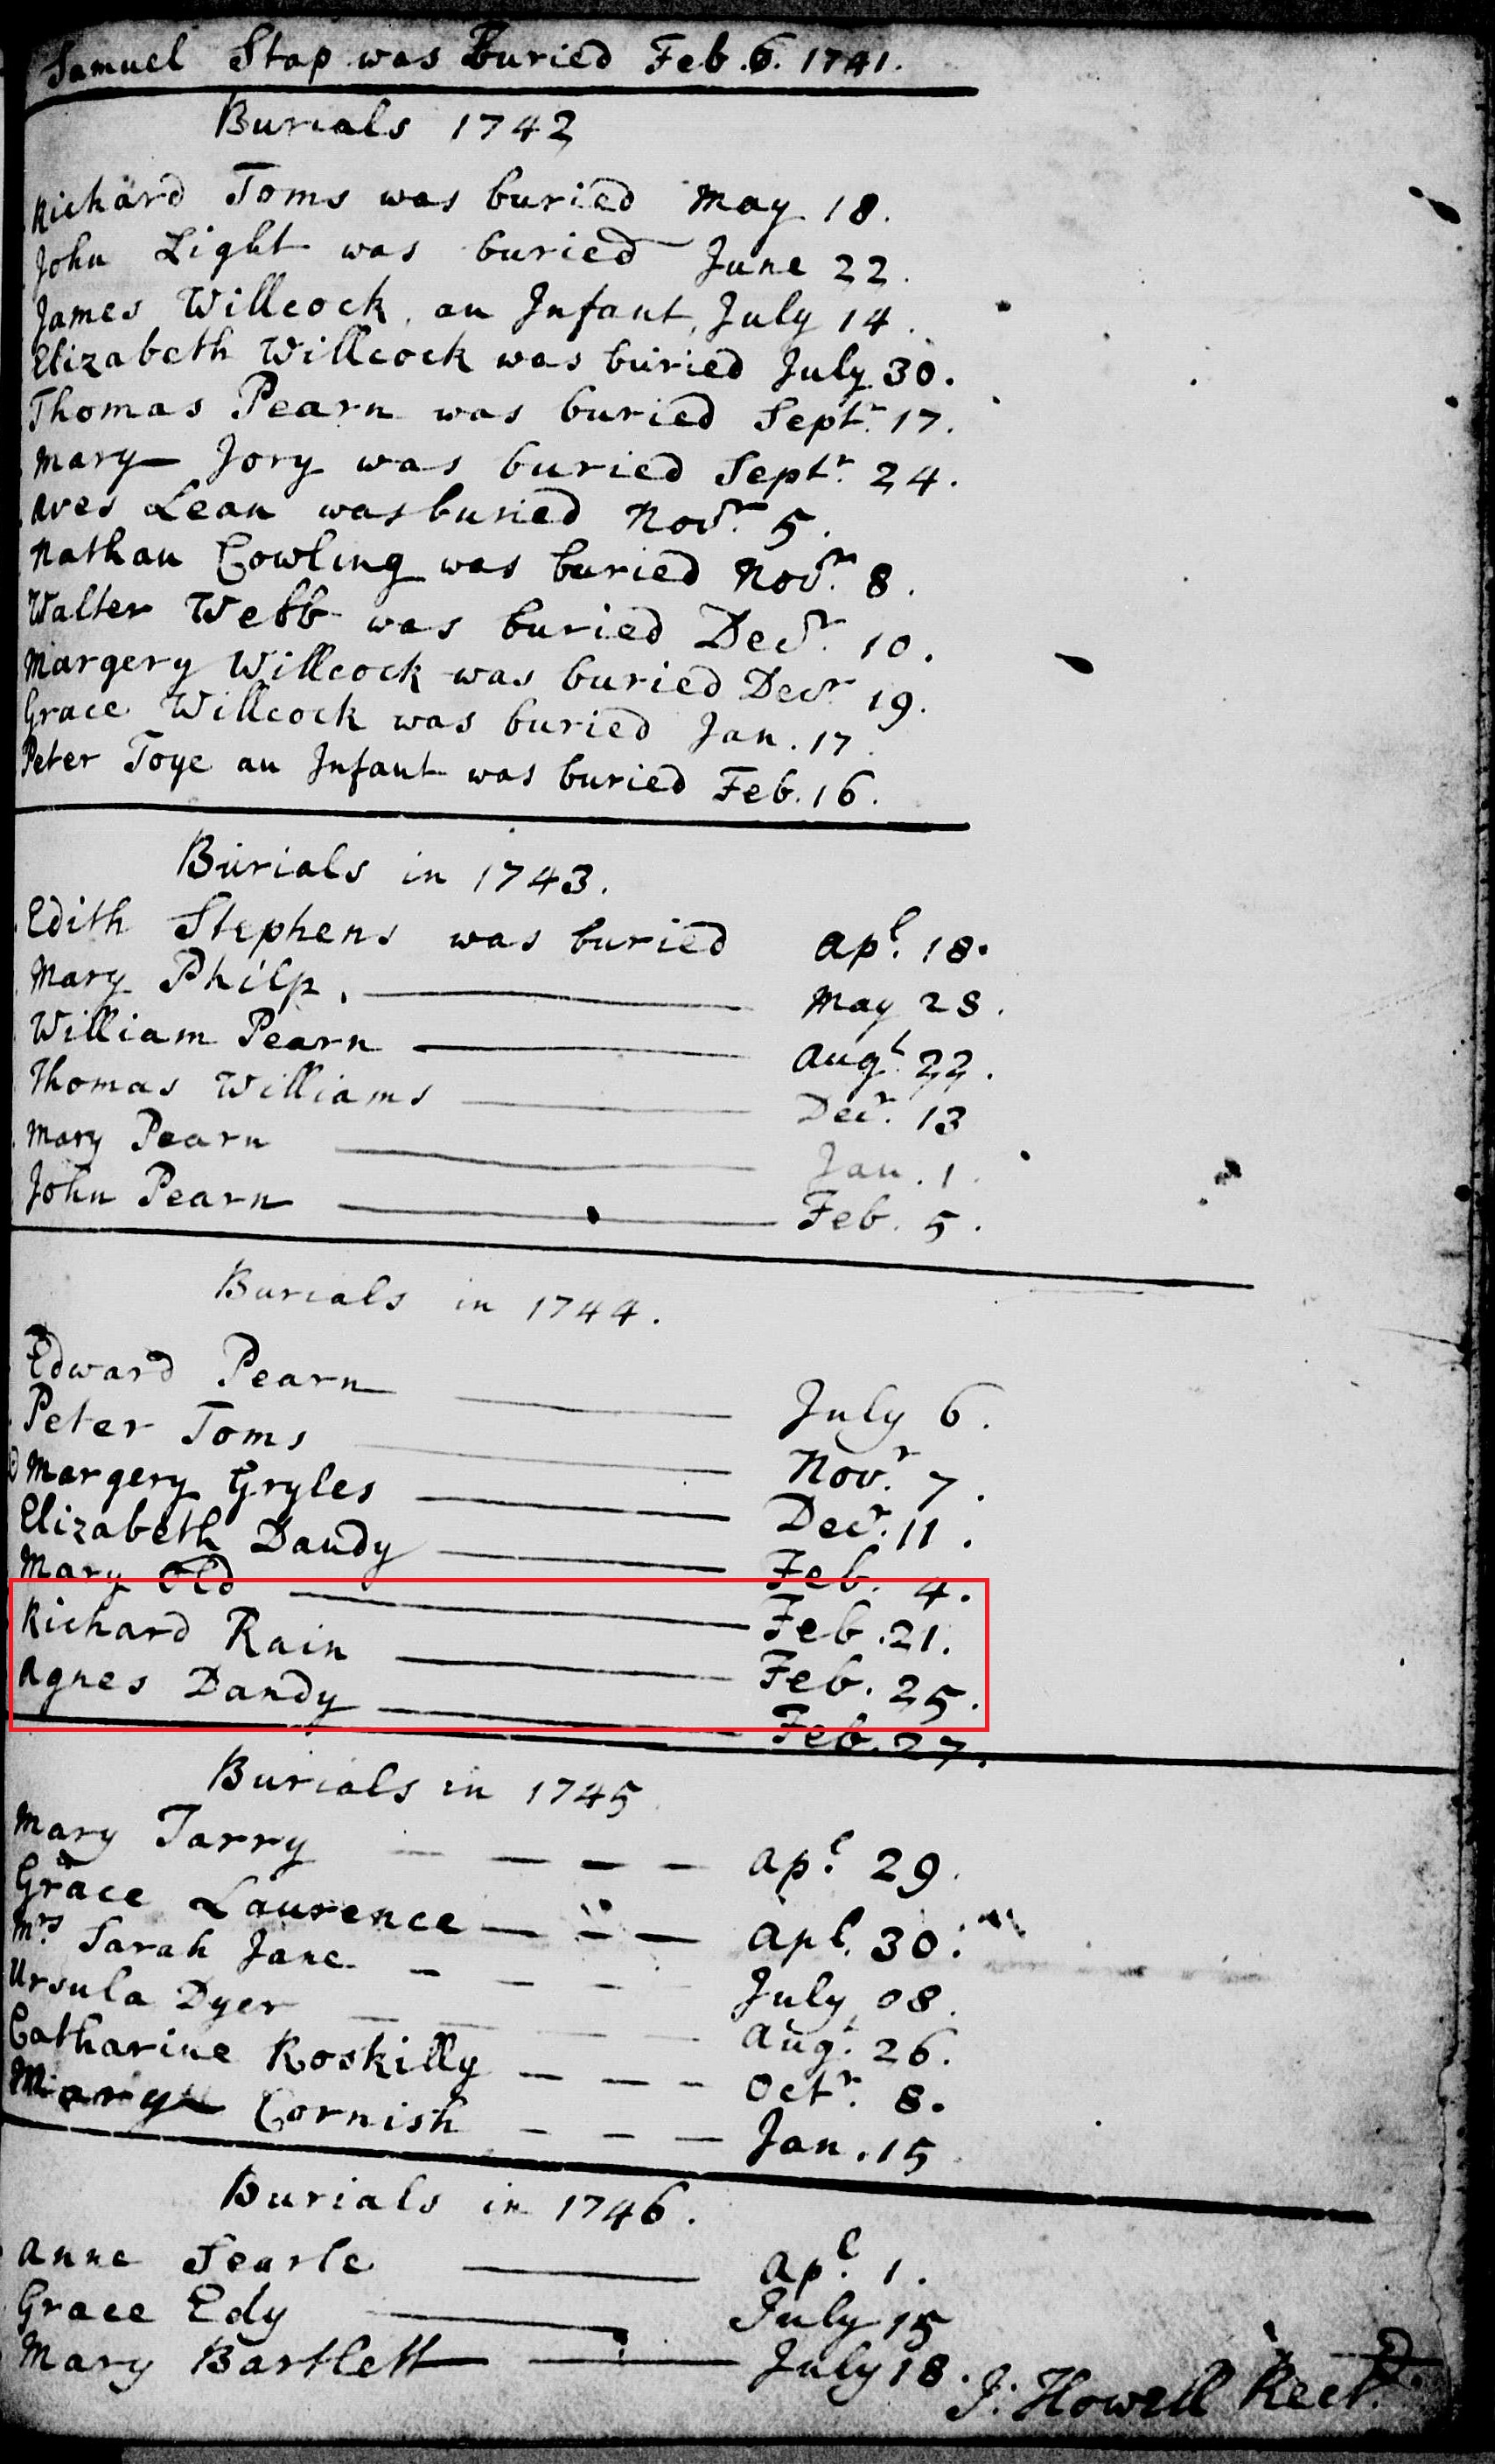 Samuel Stap was Buried Feb. 6. 1741.
Burials 1742
Richard Toms was buried May 18.
John Light was buried June 22.
James Willcock, an Infant, July 14.
Elizabeth Willcock was buried July 30.
Thomas Pearn was buried Septr. 17.
Mary Jory was buried Septr. 24.
Aves Lean was buried Novr. 5.
Nathan Cowling was buried Novr. 8.
Walter Webb was buried Decr. 10.
Margery Willcock was buried Decr. 19.
Grace Willcock was buried Jan. 17.
Peter Toye an Infant was buried Feb. 16.
Burials in 1743.
Edith Stephens was buried Apl. 18.
Mary Philp. May 28.
William Pearn Augt. 22.
Thomas Williams Decr. 13
Mary Pearn Jan. 1.
John Pearn Feb. 5.
Burials in 1744.
Edward Pearn July 6.
Peter Toms Novr. 7.
Margery Gryles Decr. 11.
Elizabeth Dandy Feb. 4.
Mary Old Feb. 21.
Richard Rain Feb. 25.
Agnes Dandy Feb. 27.
Burials in 1745
Mary Tarry Apl. 29.
Grace Laurence Apl. 30.
Mrs. Sarah Jane July 08.
Ursula Dyer Augt. 26.
Catharine Roskilly Octr. 8.
Mary Cornish Jan. 15
Burials in 1746.
Anne Searle Apl. 1.
Grace Edy July 15
Mary Bartlett July 18.
J. Howell Rectr.